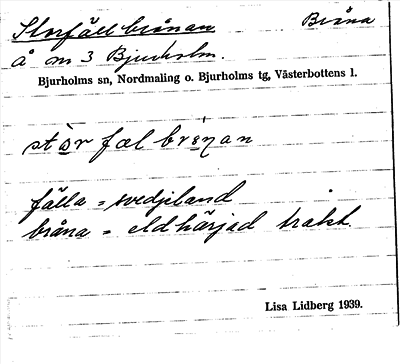 Storfällbrånan Bråna
Å om 3 Bjurholm.
Bjurholms sn, Nordmaling o. Bjurholms tg, Västerbottens l.
fälla = svedjeland
bråna = eldhärjad trakt.
Lisa Lidberg 1939.